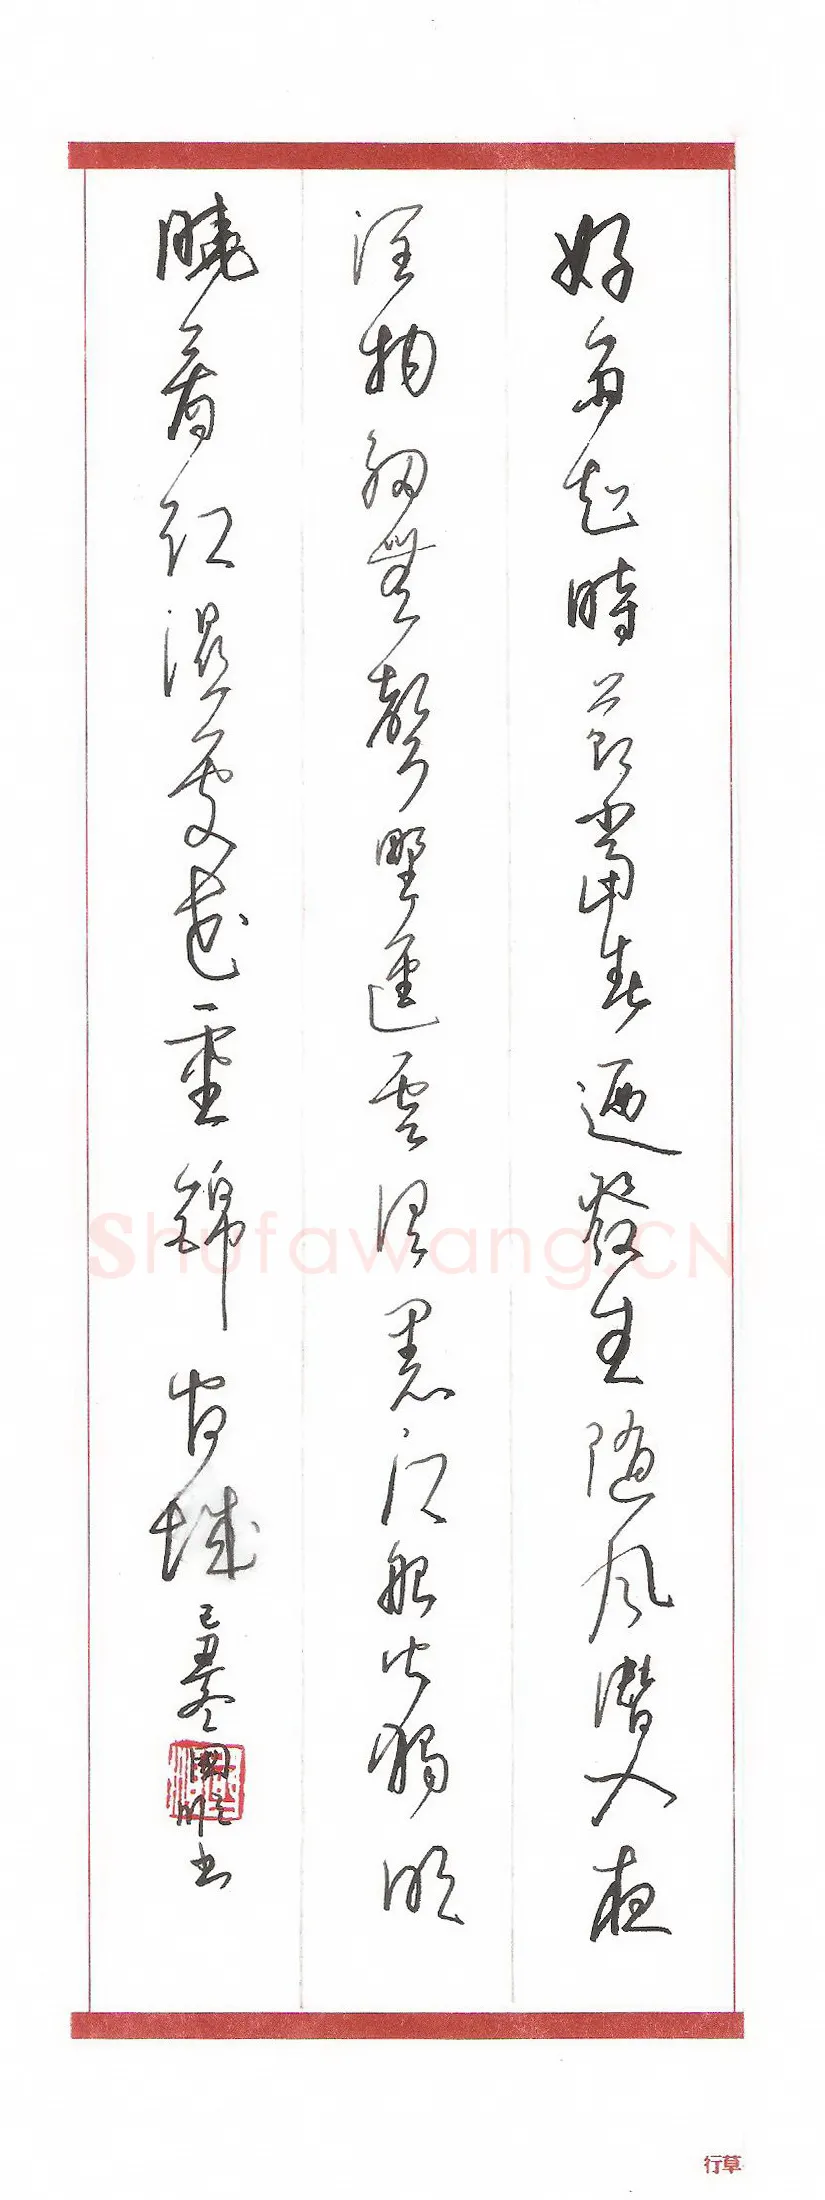 好雨知時節當春迺發生隨風潛入夜
潤物細無聲野逕雲俱黑江船火獨明
曉看紅濕處花重錦官城 己丑冬國書
Shufawang.CN
行草